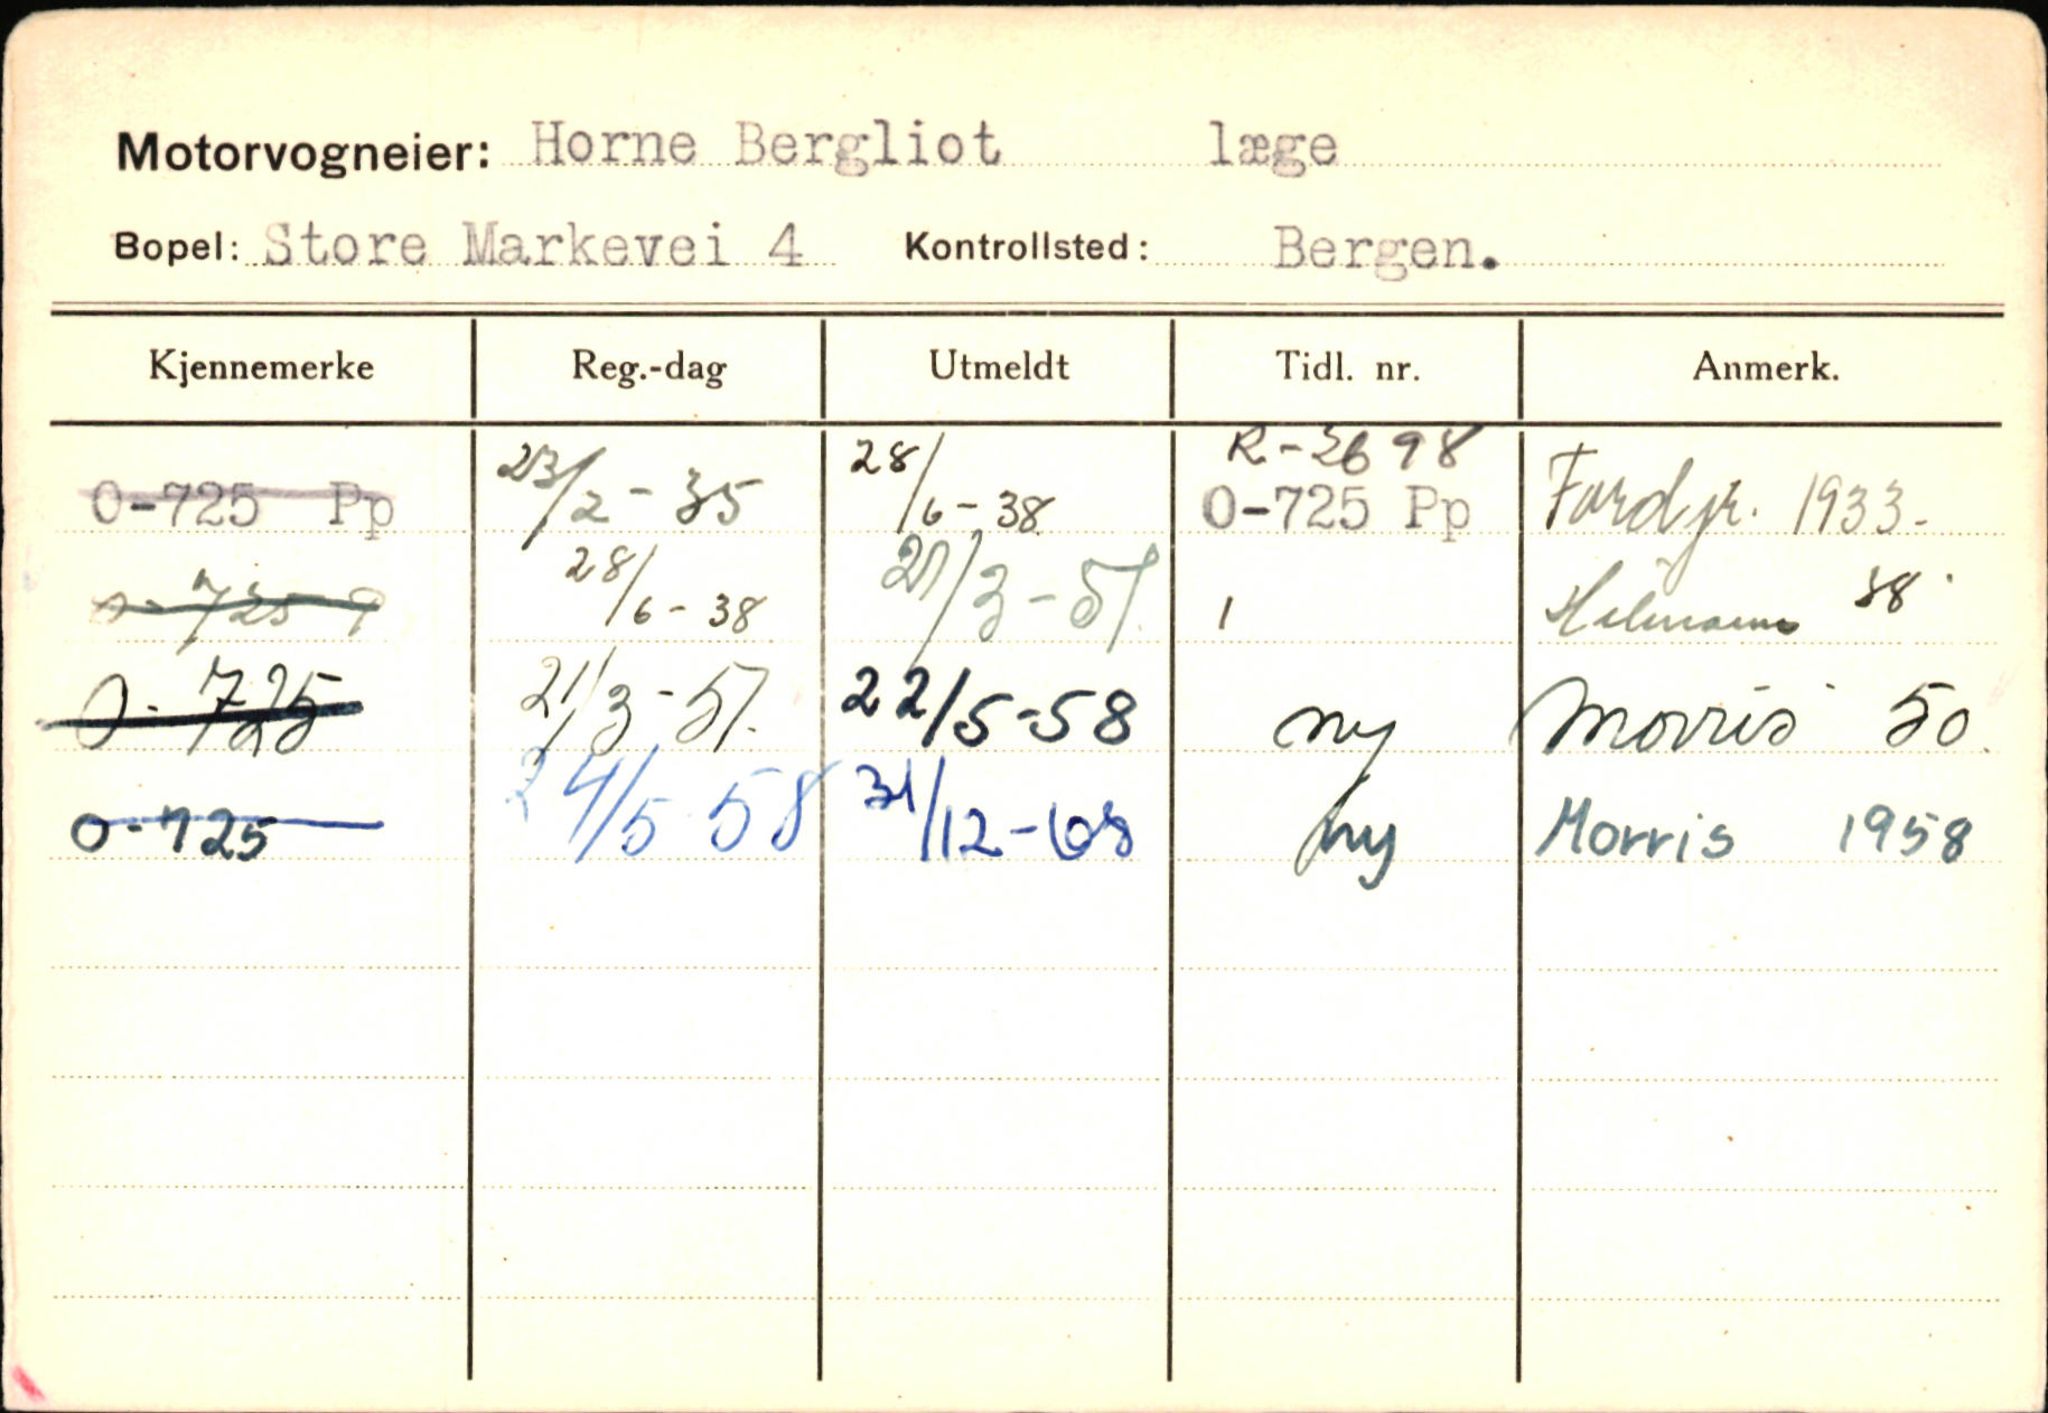 Motorvogneier: Horne Bergliot læge
Bopel: Store Markevei 4 Kontrollsted: Bergen.
Kjennemerke Reg.-dag Utmeldt Tidl. nr. Anmerk.
R-3698
O-725 Pp 23/2-35 28/6-38 O-725 Pp Ford jr. 1933-
O-725 P 28/6-38 21/3-51. 1 38
O-725 21/3-51. 22/5-58 ny Morris 50.
O-725 24/5 58 31/12-68 ny Morris 1958